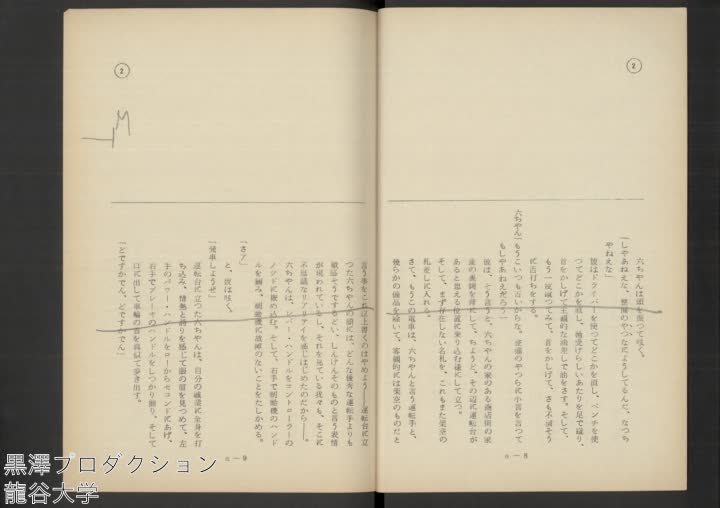 ②
六ちやんは頭を振つて呟く。
「しやあねえな、整備のやつなにようしてるんだ、なつちやねえな」
彼はドライバーを使つてどこかを直し、ペンチを使つてどこかを直し、
首をかしげて
もう一度坐つてみて、首をかしげて、さも不満そうに舌打ちをする。
六ちやん「もうこいつも古いからな。
もしやあねえだろう」
彼は、そう言うと、六ちやんの家のある商店街の家並の裏側を背にして、ちようど、その辺に運転台があると思える位置に乗り込む様にして立つ。
そして、まず存在しない名札を、これもまた架空の札差しに入れる。
さて、もうこの電車は、六ちやんと言う運転手と、幾らかの備品を除いて、客観的には架空のものだと
a—8
②
言う事をこれ以上書くのはやめよう——運転台に立つた六ちやんの顔には、どんな優秀な運転手よりも敏活そうですると い、しんけんそのものと言う表情が現われているし、それを見ている我々も、そこに不思議なリアリテイを感じはじめたのだから——。
六ちやんは、レバー・ハンドルをコントローラーのノッドに嵌め込む。そして、右手で制動機のハンドルを掴み、制動機に故障のないことをたしかめる。
「さア」
と、彼は呟く。
「発車しようぜ」
運転台に立つた六ちやんは、自分の職業に全身を打ち込み、情熱と誇りを感じて眼の前を見つめて、左手のパワー・ハンドルをローからセコンドにあげ、右手でブレーキのハンドルをしつかり握り、そして口に出して車輪の音を真似て歩き出す。
「どですかでん、どですかでん」
a—9
黒澤プロダクション
龍谷大学